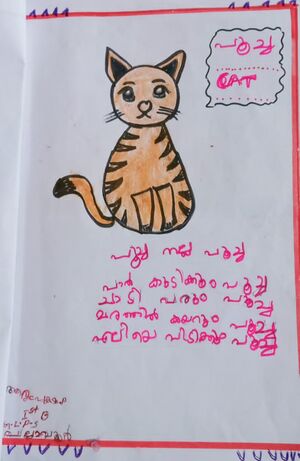 പൂച്ച
CAT
പൂച്ച നല്ല പൂച്ച
പാൽ കുടിക്കും പൂച്ച
ചാടി വരും പൂച്ച
മരത്തിൽ കയറും പൂച്ച
എലിയെ പിടിക്കും പൂച്ച
Ist B
G.L.P.S